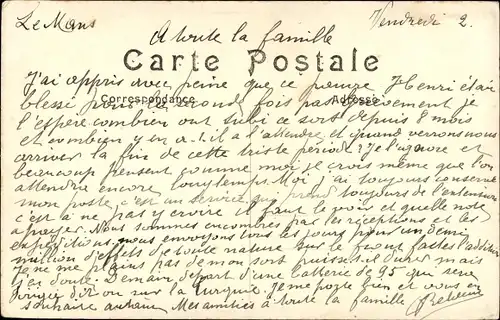 Le Mans Vendredi 2.
A toute la famille
Carte Postale
J'ai appris avec peine que ce pauvre Henri était
Correspondance Adresse
blessé pour la seconde fois pas grièvement je
l'espère combien ont subi ce sort depuis 8 mois
et combien y en a-t-il a l'attendre et quand verrons nous
arriver la fin de cette triste période? Je l'ignore et
beaucoup pensent comme moi je crois même que l'on
attendra encore longtemps. Moi j'ai toujours conservé
mon poste c'est un service qui prend toujours de l'extension
c'est à ne pas y croire il faut le voir et quelle note
a payer. Nous sommes encombrés par les réceptions et les
expéditions, nous envoyons tous les jours pour un demi
million d'effets de toute nature sur le front faites l'addition
Je ne me plains pas de mon sort puisse-t-il durer mais
j'en doute. Demain départ d'une batterie de 95 qui sera
dirigée dit on sur la Turquie. Je me porte bien et vous en
souhaite autant. Mes amitiés à toute la famille